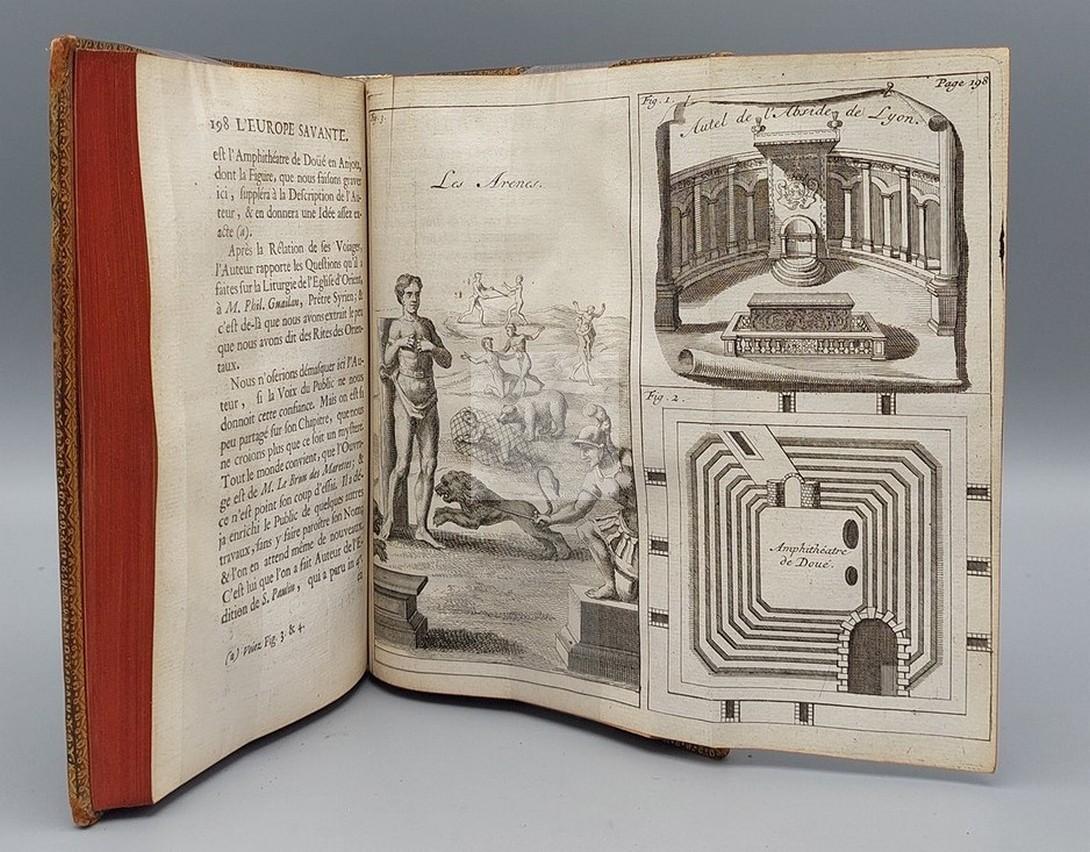 198 L'EUROPE SAVANTE.
est l'Amphithéatre de Doüé en Anjou,
dont la Figure, que nous faisons graver
ici, suppléra à la Description de l'Au-
teur, & en donnera une Idée assez ex-
acte (a).
Après la Rélation de ses Voiages,
l'Auteur rapporte les Questions qu'il a
faites sur la Liturgie de l'Eglise d'Orient,
à M. Phil. Guailan, Prêtre Syrien; &
c'est de-là que nous avons extrait le peu
que nous avons dit des Rites des Orien-
taux.
Nous n'oserions démasquer ici l'Au-
teur, si la Voix du Public ne nous
donnoit cette confiance. Mais on est si
peu partagé sur son Chapitre, que nous
ne croions plus que ce soit un mystere.
Tout le monde convient, que l'Ouvra-
ge est de M. Le Brun des Marettes; &
ce n'est point son coup d'essai. Il a dé-
ja enrichi le Public de quelques autres
travaux, sans y faire paroître son Nom;
& l'on en attend même de nouveaux.
C'est lui que l'on a fait Auteur de l'E-
dition de S. Paulin, qui a paru in 4°.
en
(a) Voiez Fig. 3. & 4.
Fig. 3.
Les Arenes.
Fig. 1.
Page 198
Autel de l'Abside de Lyon.
Fig. 2.
Amphithéatre
de Doué.